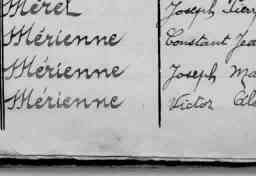 Méret Joseph Pierr
Mérienne Constant Jea
Mérienne Joseph Ma
Mérienne Victor Ale